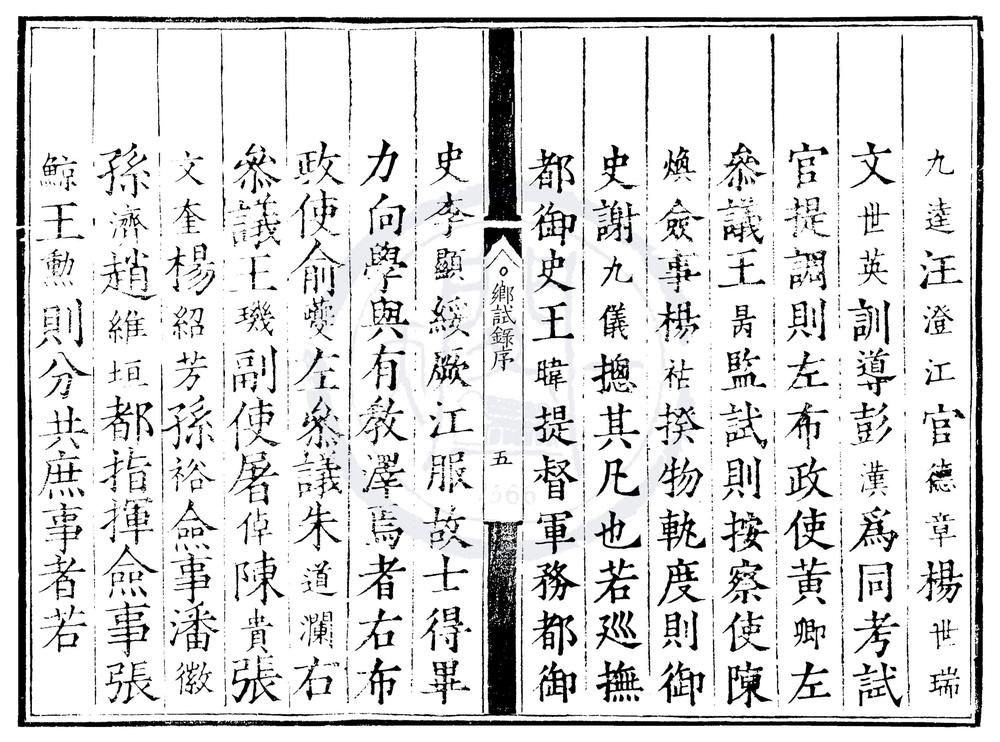 九逵汪澄江官德章楊世瑞
文世英訓導彭漢爲同考試
官提調則左布政使黃卿左
叅議王昺監試則按察使陳
煥僉事楊祜揆物軌度則御
史謝九儀摠其凡也若廵撫
都御史王暐提督軍務都御
鄉試錄序
五
史李顯綏厥江服故士得畢
力向學與有敎澤焉者右布
政使俞夔左叅議朱道瀾右
叅議王璣副使屠倬陳貴張
文奎楊紹芳孫裕僉事潘徽
孫濟趙維垣都指揮僉事張
鯨王勲則分共庶事者若